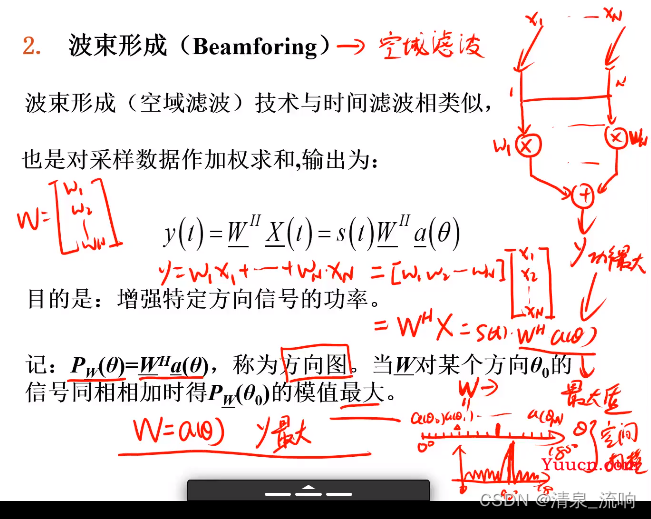 2. 波束形成（Beamforing）→ 空域滤波
x₁ -- x_N
波束形成（空域滤波）技术与时间滤波相类似，
也是对采样数据作加权求和,输出为：
W₁ ⊗ -- ⊗ W_N
+
W=[W₁ W₂ ⋮ W_N]
y(t)=W^H X(t)=s(t)W^H a(θ)
y 功率最大
y=W₁X₁+--+W_N X_N =[W₁ W₂ -- W_N][x₁ x₂ ⋮ x_N]
目的是：增强特定方向信号的功率。
=W^H X=S(t)·W^H a(θ)
记：P_W(θ)=W^H a(θ)，称为方向图。当W对某个方向θ₀的
信号同相相加时得P_W(θ₀)的模值最大。
最大值
W→
W=a(θ) y最大
0° 180°
θ 空间
Yuucn.com
CSDN @清泉_流响